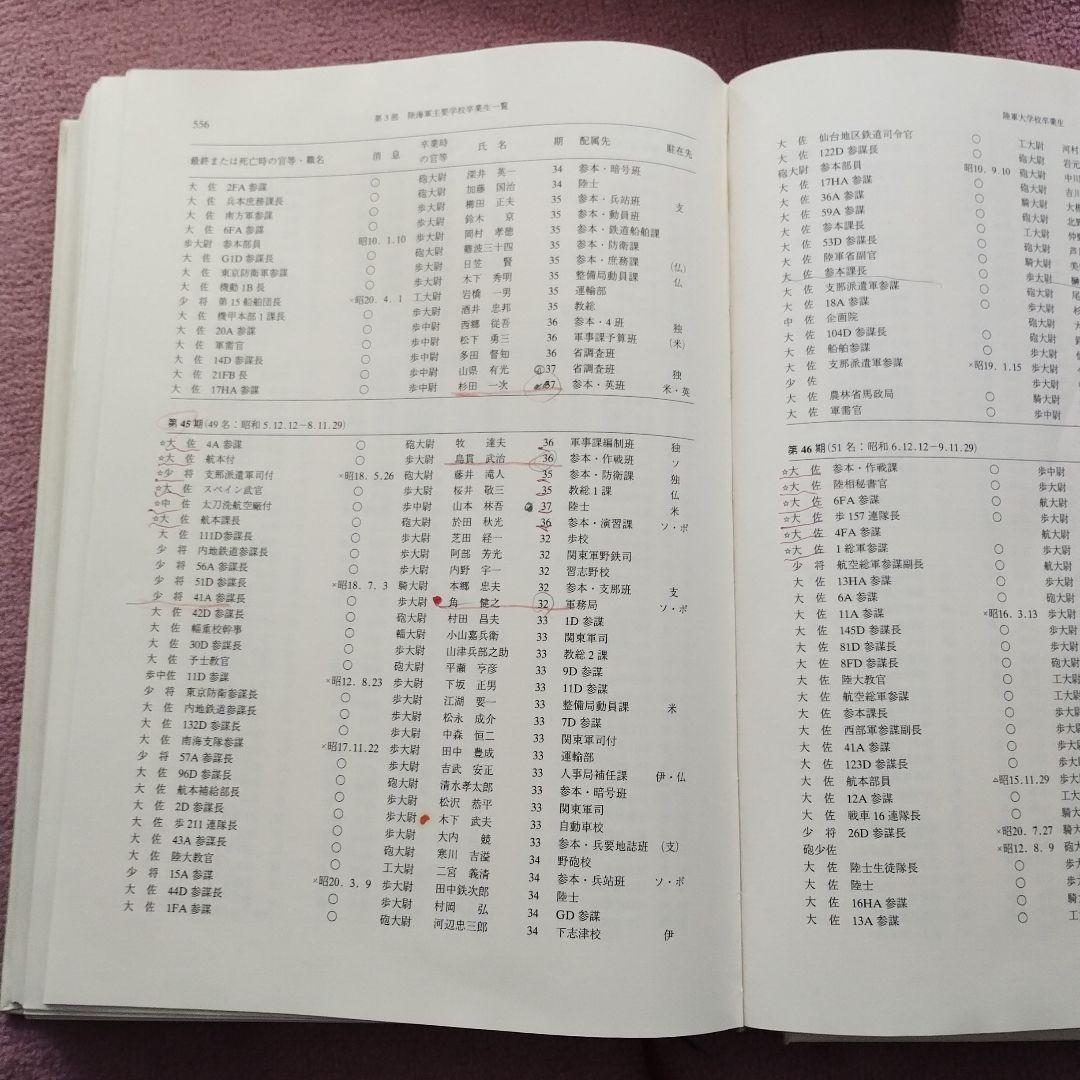 556 第3部 陸海軍主要学校卒業生一覧
最終または死亡時の官等・職名 消息 卒業時の官等 氏名 期 配属先 駐在先
大佐 2FA参謀 ○ 砲大尉 深井英一 34 参本・暗号班
大佐 兵本庶務課長 ○ 砲大尉 加藤国治 34 陸士
大佐 南方軍参謀 ○ 歩大尉 櫛田正夫 35 参本・兵站班 支
大佐 6FA参謀 ○ 歩大尉 鈴木京 35 参本・動員班
歩大尉 参本部員 昭10.1.10 歩大尉 岡村孝徳 35 参本・鉄道船舶課
大佐 G1D参謀長 ○ 砲大尉 難波三十四 35 参本・防衛課
大佐 東京防衛軍参謀 ○ 歩大尉 日笠賢 35 参本・庶務課 (仏)
大佐 機動1B長 ○ 歩大尉 木下秀明 35 整備局動員課 仏
少将 第15船舶団長 ×昭20.4.1 工大尉 岩橋一男 35 運輸部
大佐 機甲本部1課長 ○ 歩大尉 酒井忠邦 35 教総
大佐 20A参謀 ○ 歩中尉 西郷従吾 36 参本・4班 独
大佐 軍需官 ○ 歩中尉 松下勇三 36 軍事課予算班 (米)
大佐 14D参謀長 ○ 歩中尉 多田督知 36 省調査班
大佐 21FB長 ○ 歩中尉 山県有光 37 省調査班 独
大佐 17HA参謀 ○ 歩中尉 杉田一次 37 参本・英班 米・英
第45期(49名：昭和5.12.12-8.11.29)
☆大佐 4A参謀 ○ 砲大尉 牧達夫 36 軍事課編制班 独
☆大佐 航本付 ○ 歩大尉 島貫武治 36 参本・作戦班 ソ
☆少将 支那派遣軍司付 ×昭18.5.26 砲大尉 藤井滝人 35 参本・防衛課 独
☆大佐 スペイン武官 ○ 歩大尉 桜井敬三 35 教総1課 仏
☆中佐 太刀洗航空廠付 ○ 歩中尉 山本林吾 37 陸士 米
☆大佐 航本課長 ○ 砲大尉 於田秋光 36 参本・演習課 ソ・ポ
大佐 111D参謀長 ○ 歩大尉 芝田経一 32 歩校
少将 内地鉄道参謀長 ○ 歩大尉 阿部芳光 32 関東軍野鉄司
少将 56A参謀長 ○ 歩大尉 内野宇一 32 習志野校
少将 51D参謀長 ×昭18.7.3 騎大尉 本郷忠夫 32 参本・支那班 支
少将 41A参謀長 ○ 歩大尉 角健之 32 軍務局 ソ・ポ
大佐 42D参謀長 ○ 砲大尉 村田昌夫 33 1D参謀
大佐 輜重校幹事 ○ 輜大尉 小山嘉兵衛 33 関東軍司
大佐 30D参謀長 ○ 歩大尉 山津兵部之助 33 教総2課
大佐 予士教官 ○ 砲大尉 平瀬亨彦 33 9D参謀
歩中佐 11D参謀 ×昭12.8.23 歩大尉 下坂正男 33 11D参謀
少将 東京防衛参謀長 ○ 歩大尉 江湖要一 33 整備局動員課 米
大佐 内地鉄道参謀長 ○ 歩大尉 松永成介 33 7D参謀
大佐 132D参謀長 ○ 歩大尉 中森恒二 33 関東軍司付
大佐 南海支隊参謀 ×昭17.11.22 歩大尉 田中豊成 33 運輸部
少将 57A参謀長 ○ 歩大尉 吉武安正 33 人事局補任課 伊・仏
大佐 96D参謀長 ○ 砲大尉 清水孝太郎 33 参本・暗号班
大佐 航本補給部長 ○ 歩大尉 松沢恭平 33 関東軍司
大佐 2D参謀長 ○ 歩大尉 木下武夫 33 自動車校
大佐 歩211連隊長 ○ 歩大尉 大内競 33 参本・兵要地誌班 (支)
大佐 43A参謀長 ○ 砲大尉 寒川吉溢 34 野砲校
大佐 陸大教官 ○ 工大尉 二宮義清 34 参本・兵站班 ソ・ポ
少将 15A参謀 ×昭20.3.9 歩大尉 田中鉄次郎 34 陸士
大佐 44D参謀長 ○ 歩大尉 村岡弘 34 GD参謀
大佐 1FA参謀 ○ 砲大尉 河辺忠三郎 34 下志津校 伊
陸軍大学校卒業生
大佐 仙台地区鉄道司令官 ○ 工大尉 河村
大佐 122D参謀長 ○ 砲大尉 岩元
砲大尉 参本部員 昭10.9.10 砲大尉 中川
大佐 17HA参謀 ○ 砲大尉
大佐 36A参謀 ○ 騎大尉
大佐 59A参謀 ○ 砲大尉
大佐 参本課長 ○ 騎大尉
大佐 53D参謀長 ○ 砲大尉
大佐 陸軍省副官 ○ 騎大尉
大佐 参本課長 ○ 歩大尉
大佐 支那派遣軍参謀 ○ 騎大尉
大佐 18A参謀 ○ 歩大尉
中佐 企画院 砲大尉
大佐 104D参謀長 ○ 砲大尉
大佐 船舶参謀 ○ 砲大尉
大佐 支那派遣軍参謀 ×昭19.1.15 歩大尉
少佐 歩大尉
大佐 農林省馬政局 ○ 騎大尉
大佐 軍需官 ○ 歩中尉
第46期(51名：昭和6.12.12-9.11.29)
☆大佐 参本・作戦課 ○ 歩中尉
☆大佐 陸相秘書官 ○ 歩大尉
☆大佐 6FA参謀 ○ 航大尉
☆大佐 歩157連隊長 ○ 歩大尉
☆大佐 4FA参謀 航大尉
☆大佐 1総軍参謀 ○ 歩大尉
少将 航空総軍参謀副長 ○ 航大尉
大佐 13HA参謀 ○ 歩大尉
大佐 6A参謀 ○ 砲大尉
大佐 11A参謀 ×昭16.3.13 歩大尉
大佐 145D参謀長 ○
大佐 81D参謀長 ○
大佐 8FD参謀長 ○
大佐 陸大教官 ○
大佐 航空総軍参謀 ○
大佐 参本課長 ○
大佐 西部軍参謀副長 ○
大佐 41A参謀 ○
大佐 123D参謀長 ○
大佐 航本部員 △昭15.11.29
大佐 12A参謀 ○
大佐 戦車16連隊長 ○
少将 26D参謀長 ×昭20.7.27
砲少佐 ×昭12.8.9
大佐 陸士生徒隊長 ○
大佐 陸士 ○
大佐 16HA参謀 ○
大佐 13A参謀 ○